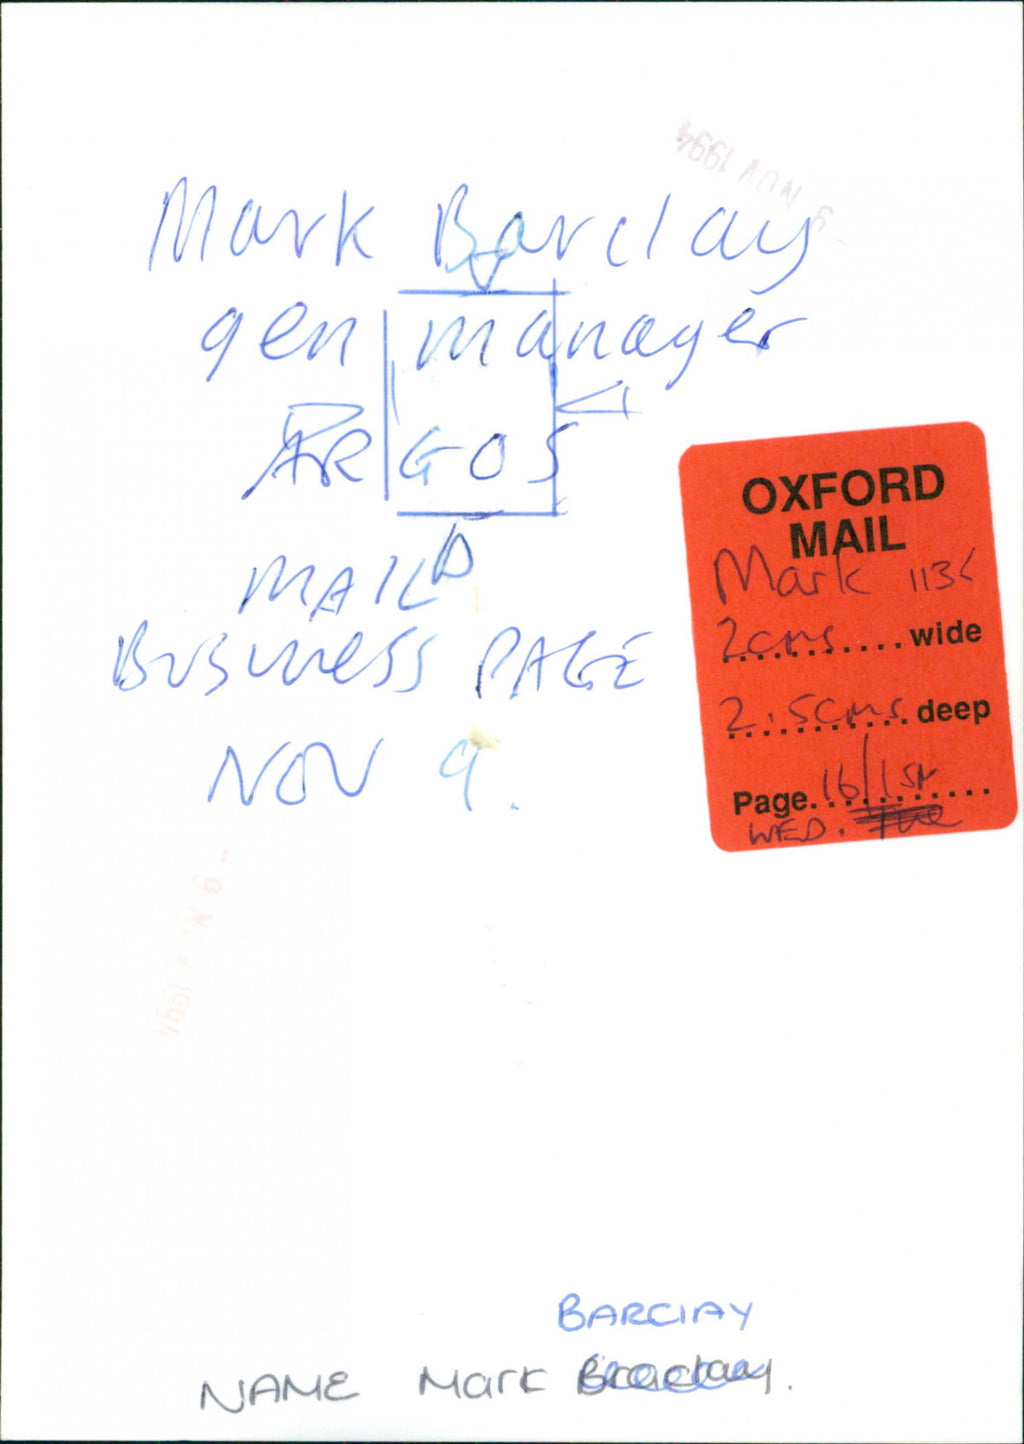 9 NOV 1994
Mark Barclay
gen manager
ARGOS
MAIL
BUSINESS PAGE
NOV 9.
OXFORD
MAIL
Mark 113%
2cms..........wide
2.5cms..........deep
Page.16/1st..........
WED. Tue
- 9 NOV 1994
BARCLAY
NAME Mark Braclay.